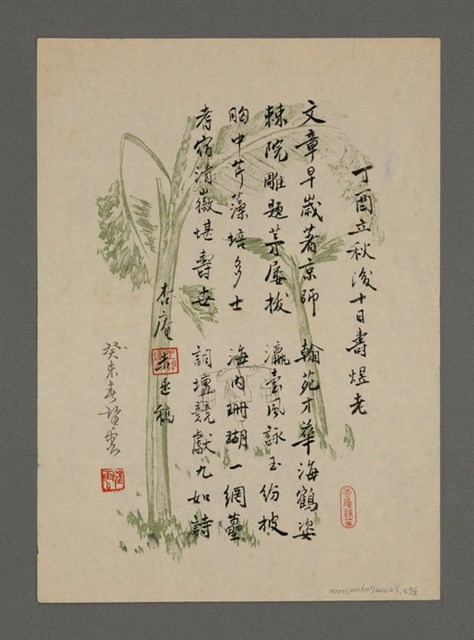 丁酉立秋後十日壽煜老
文章早歲著京師 翰苑才華海鶴姿
棘院雕題茅屢拔 瀛臺風詠玉紛披
胸中芹藻培多士 海內珊瑚一網
耆宿清徽堪壽世 詞壇競獻九如詩
杏庵 未是稿
癸未春